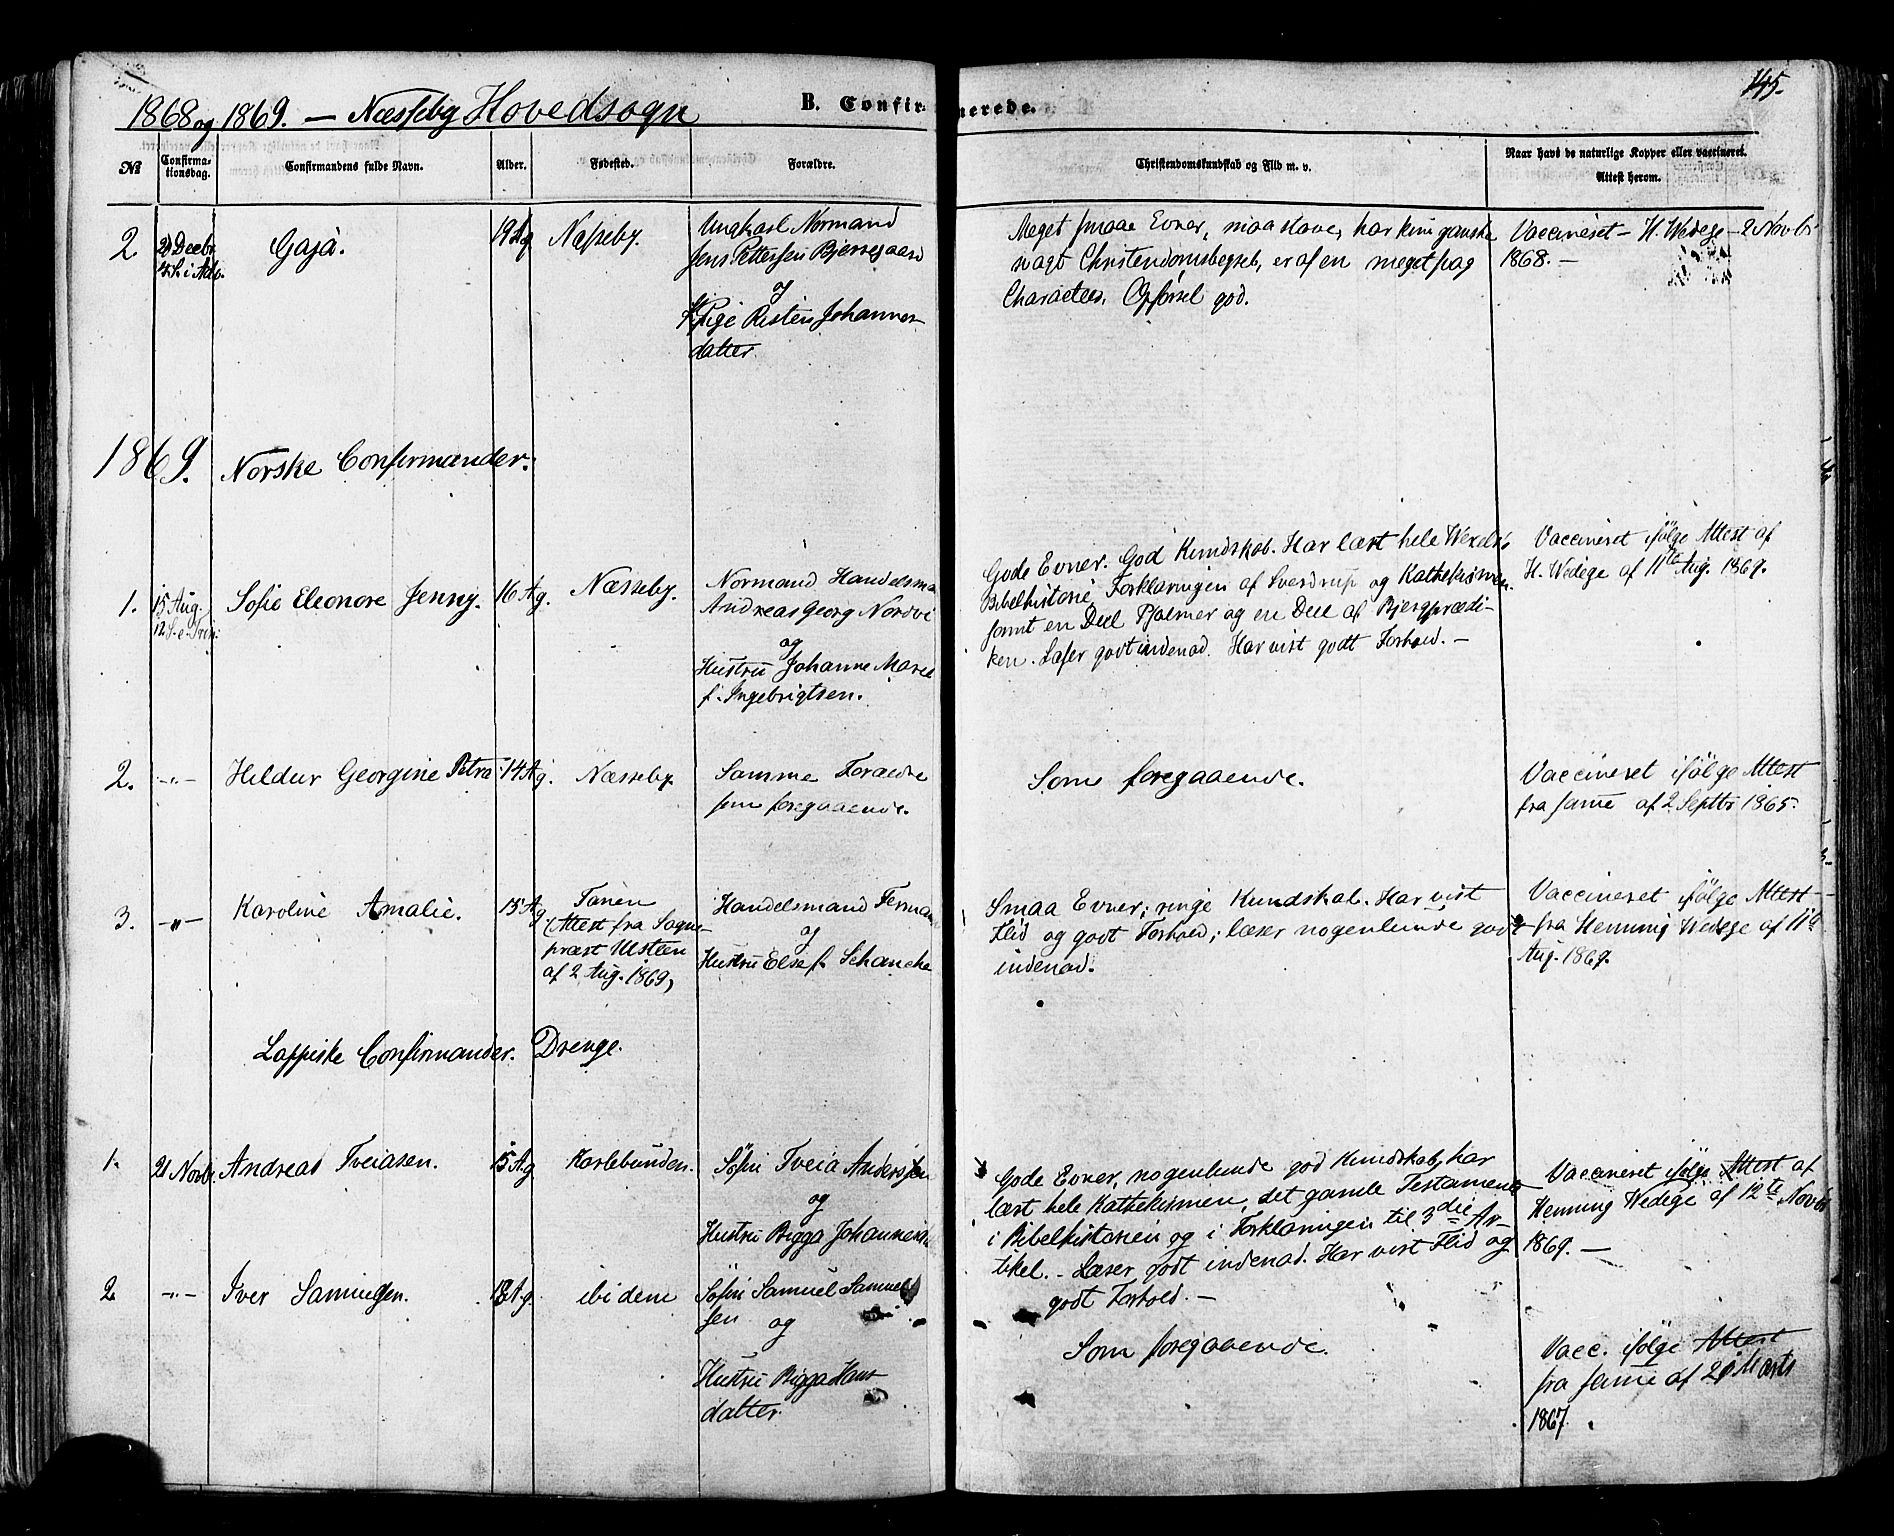 1868 og 1869. — Næsseby Hovedsogn
B. Confirmerede.
145.
No
Confirmationsdag.
Confirmandens fulde Navn.
Alder.
Fødested.
Forældre.
Christendomskundskab og Flid m. v.
Naar havt de naturlige Kopper eller vaccineret.
Attest herom.
2.
Decbr
4 S. i Adv.
Gajá.
19 Ag
Næsseby.
Ungkarl Normand
Jens Pettersen Bjerregaard
og
Pige Risten Johannes-
datter.
Meget smaae Evner, maa stave, har kun ganske
nagt Christendomsbegreb, er af en meget svag
Character, Opførsel god.
Vaccineret — H. Wedege — 2 Novbr
1868. —
1869.
Norske Confirmander.
1.
15 Aug.
12 S. e. Trin.
Sofie Eleonore Jenny.
16 Ag.
Næsseby.
Normand Handelsma
Andreas Georg Nordvi
og
Hustru Johanne Marie
f. Ingebrigtsen.
Gode Evner. God Kundskab. Har læst hele Wexels's
Bibelhistorie Forklaringen af Sverdrup og Kathekismen
samt en Deel Psalmer og en Deel af Bjergprædi-
ken. Læser godt indenad. Har vist godt Forhold. —
Vaccineret ifølge Attest af
H. Wedege af 11te Aug. 1869.
2.
—"—
Hildur Georgine Petra
14 Ag.
Næsseby
Samme Forældre
som foregaaende.
Som foregaaende.
Vaccineret ifølge Attest
fra samme af 2 Septbr 1865.
3.
—"—
Karoline Amalie.
15 Ag.
Tanen
(Attest fra Sogne-
præst Ulsteen
af 2 Aug. 1869)
Handelsmand Ferman
og
Hustru Else f. Schancke
Smaa Evner; ringe Kundskab. Har vist
Flid og godt Forhold; læser nogenlunde godt
indenad.
Vaccineret ifølge Attest
fra Henning Wedege af 11te
Aug. 1869.
Lappiske Confirmander. Drenge.
1.
21 Novbr.
Andreas Tveiasen.
15 Ag
Karlebunden.
Søfin Tveia Andersen
og
Hustru Bigga Johannesd
Gode Evner, nogenlunde god Kundskab, har
læst hele Kathekismen, det gamle Testamente
i Bibelhistorien og i Forklaringen til 3die Ar-
tikel. – Læser godt indenad. Har vist Flid og
godt Forhold. —
Vaccineret ifølge Attest af
Henning Wedege af 12te Novbr
1869. —
2
—"—
Iver Samuelsen.
18 Ag.
ibidem
Søfin Samuel Samuel-
sen og
Hustru Bigga Hans
datter.
Som foregaaende.
Vacc. ifølge Attest
fra samme af 21 Marts
1867.